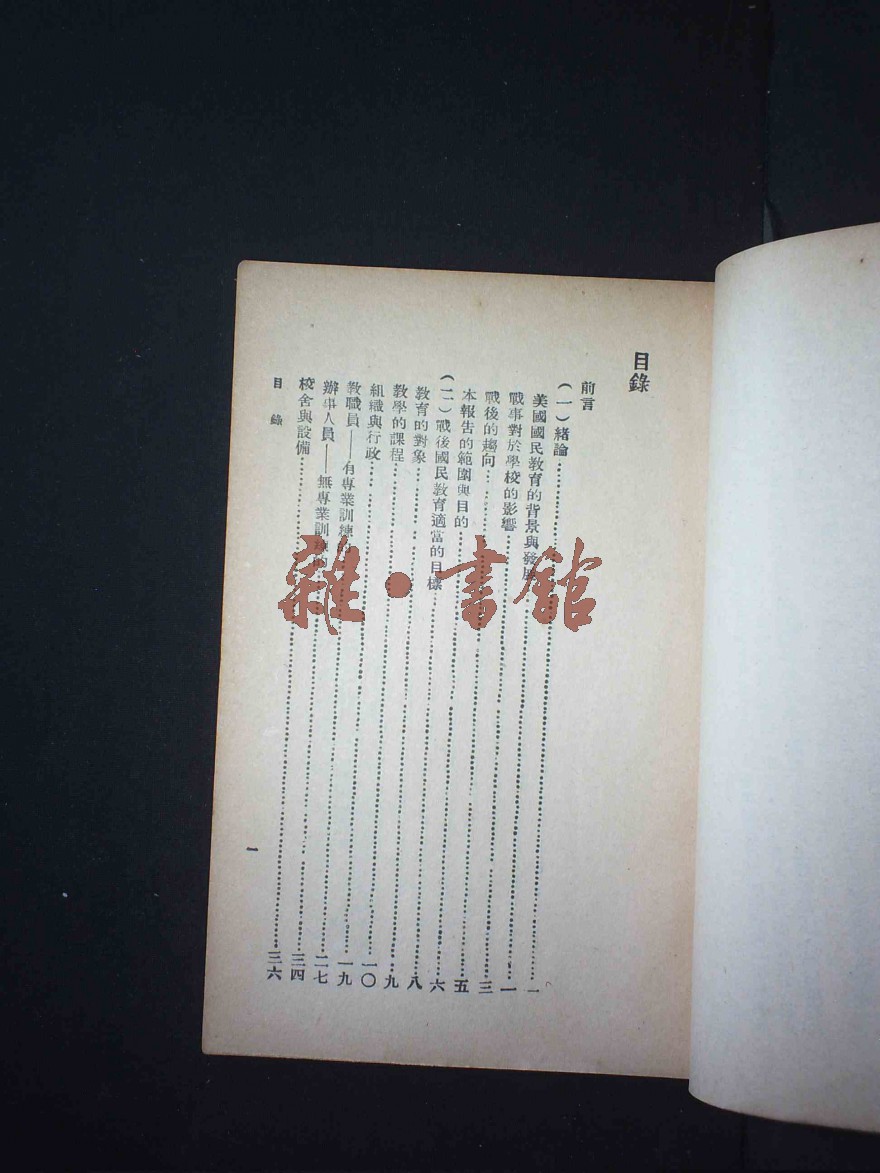 目錄
前言
(一)緒論……一
美國國民教育的背景與發展……一
戰事對於學校的影響……三
戰後的趨向……五
本報告的範圍與目的……六
(二)戰後國民教育適當的目標……八
教育的對象……九
教學的課程……一〇
組織與行政……一九
教職員——有專業訓練的……二七
辦事人員——無專業訓練的……三四
校舍與設備……三六
目錄
一
雜·書館